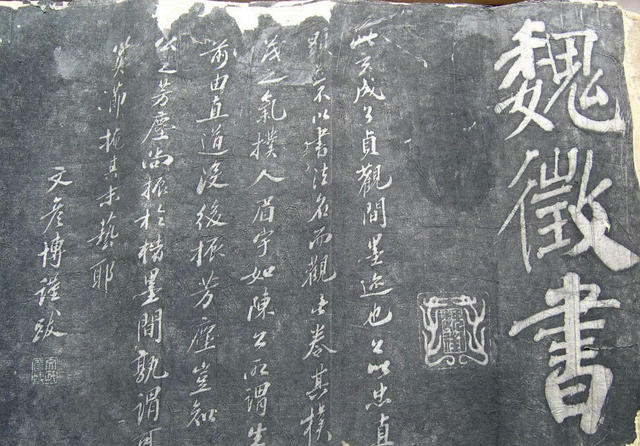 魏徵書
此公貞觀間墨迹也公以忠貞
不以書法名而觀此卷其樸
茂之氣撲人眉宇如陳公所謂生
前由直道没後振芳塵豈知
公之芳塵尚振於楮墨間孰謂可
其末藝耶
文彥博謹跋